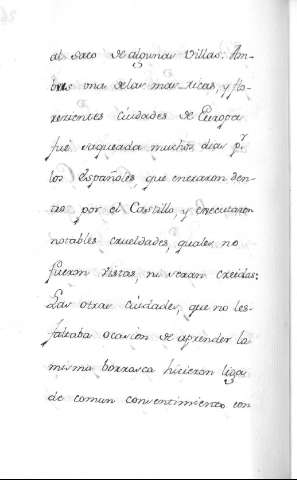 al saco de algunas villas: Am-
bres una delas mas ricas, y flo-
recientes ciudades de Europa
fué saqueada muchos dias pr.
los Españoles, que entraron den-
tro por el Castillo, y executaron
notables crueldades, quales no
fueron vistas, ni seran creidas:
Las otras ciudades, que no les
faltaba ocasion de aprender la
misma borrasca hicieron liga
de comun consentimiento con